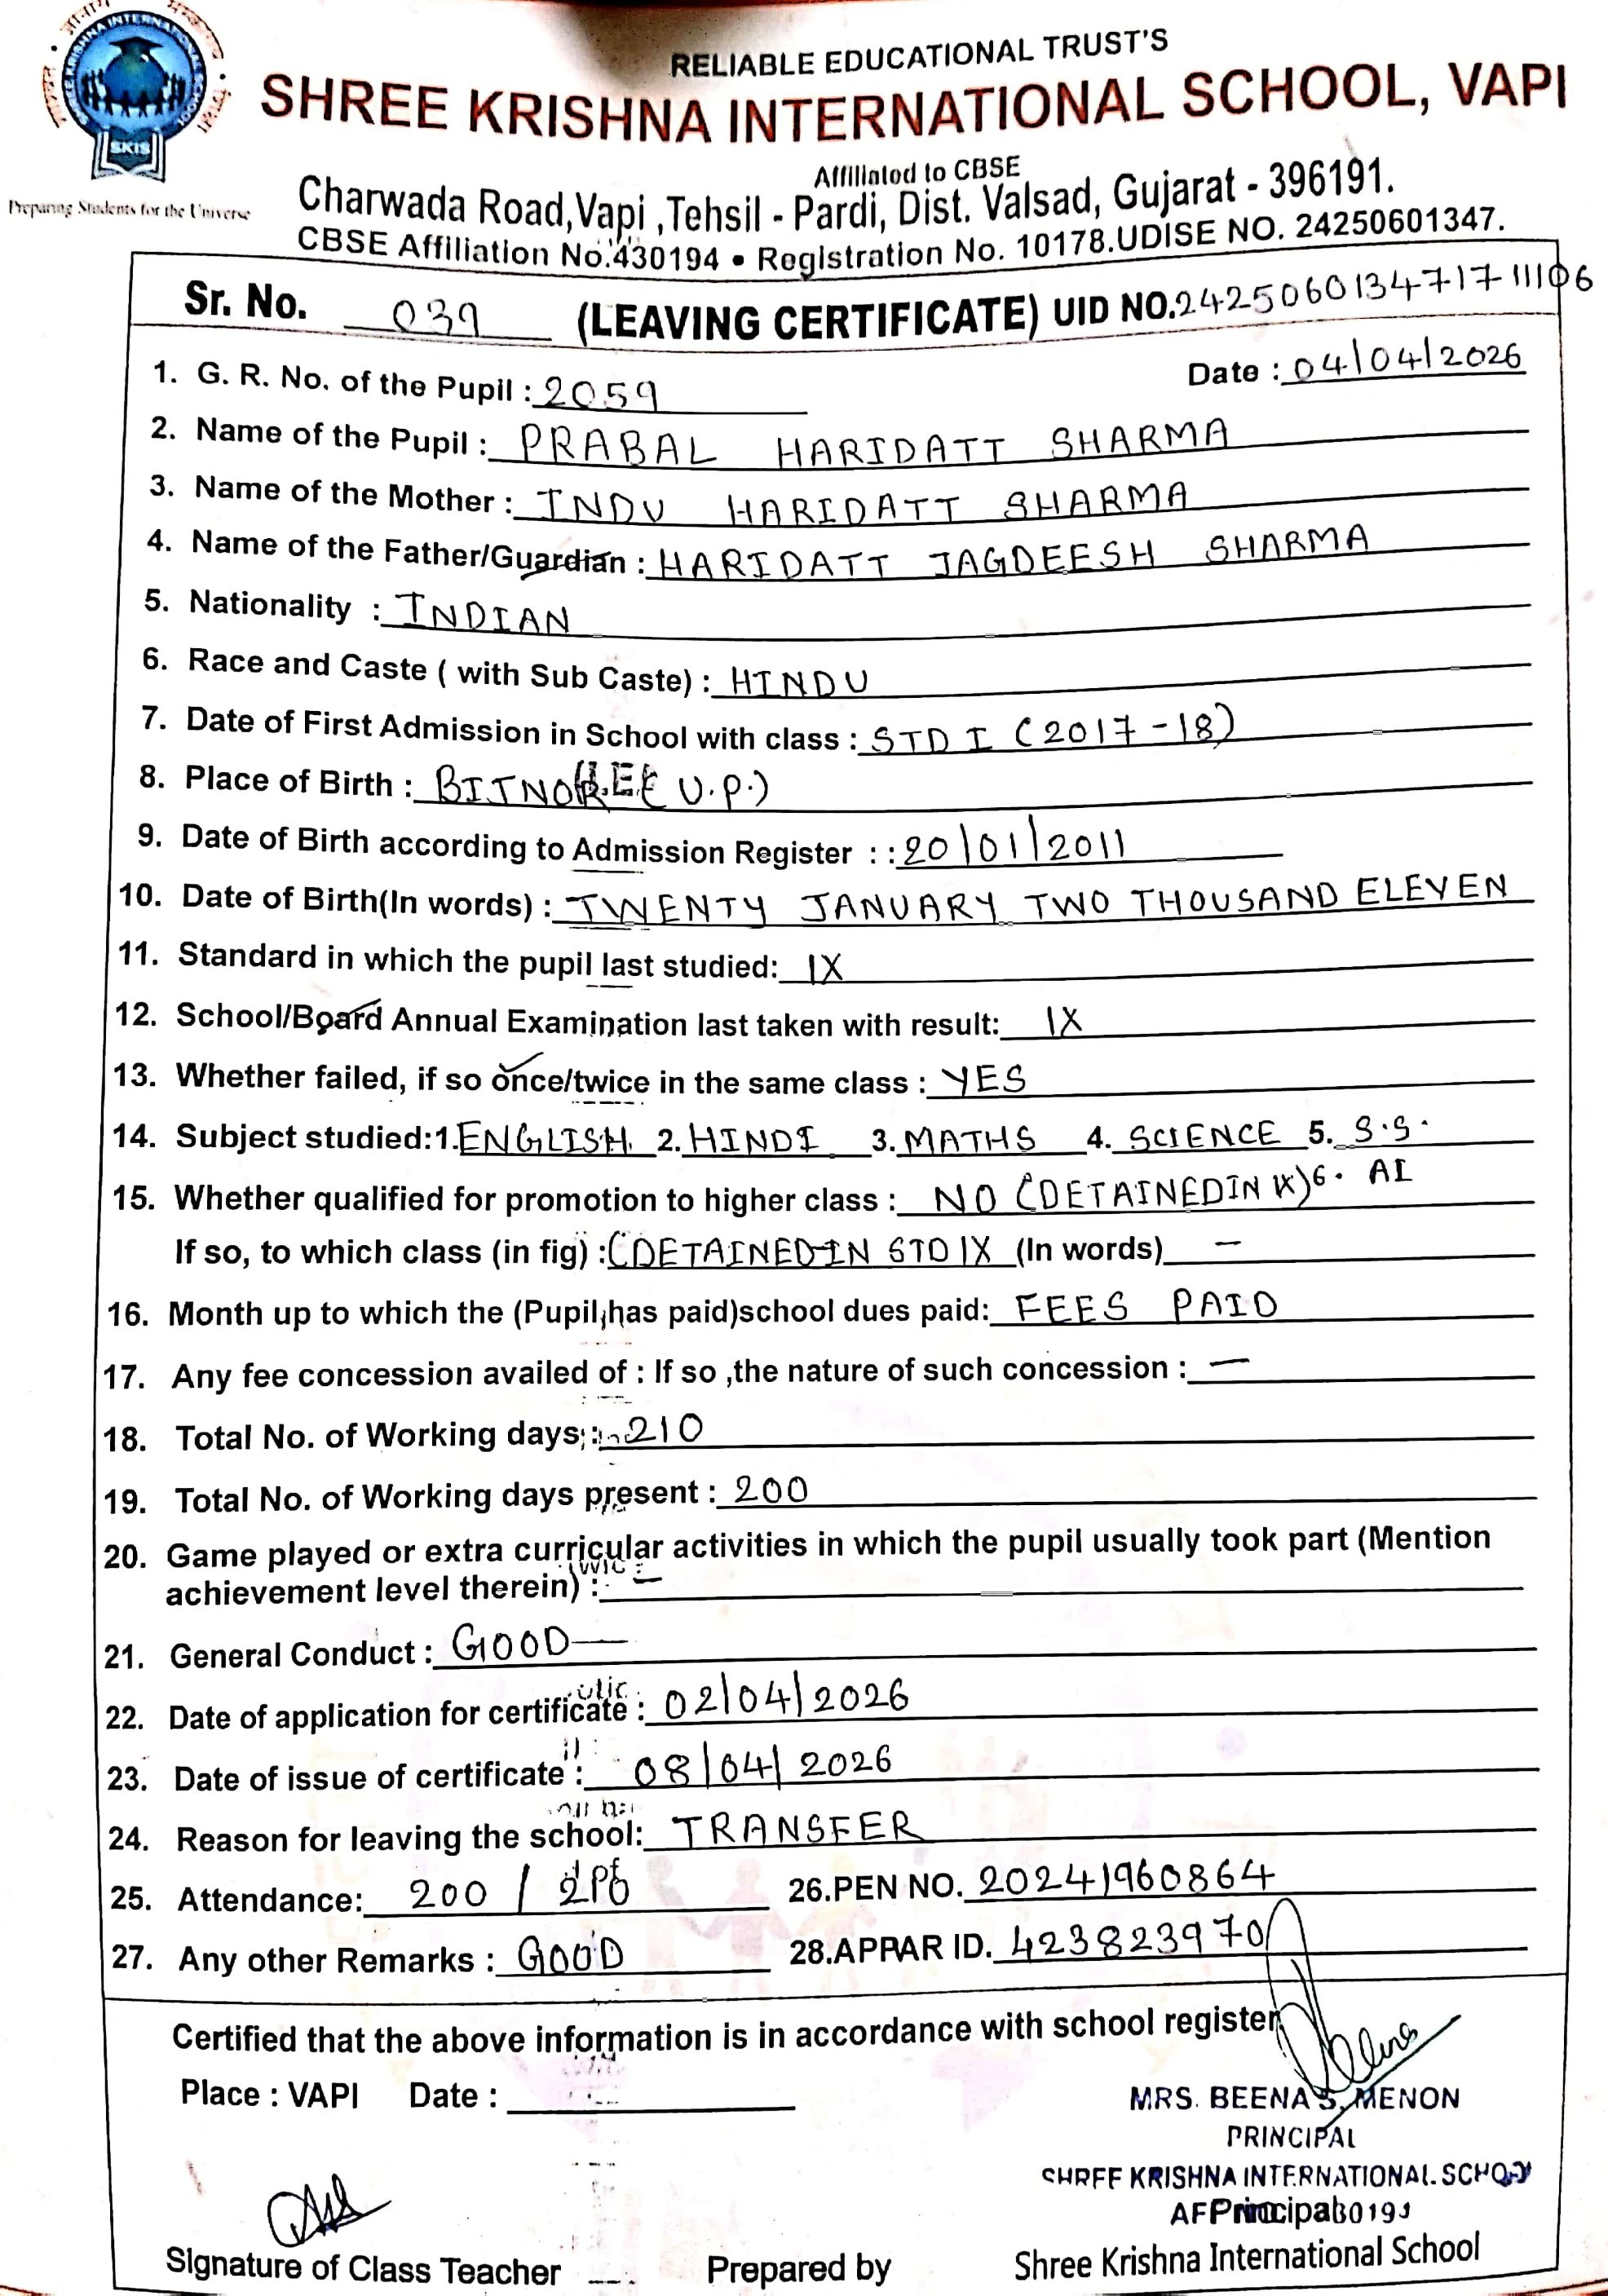 RELIABLE EDUCATIONAL TRUST'S
SHREE KRISHNA INTERNATIONAL SCHOOL, VAPI
SKIS
Preparing Students for the Universe
Affiliated to CBSE
Charwada Road,Vapi ,Tehsil - Pardi, Dist. Valsad, Gujarat - 396191.
CBSE Affiliation No.430194 • Registration No. 10178.UDISE NO. 24250601347.
Sr. No. 039 (LEAVING CERTIFICATE) UID NO.242506013471711106
1. G. R. No. of the Pupil : 2059 Date : 04/04/2026
2. Name of the Pupil : PRABAL HARIDATT SHARMA
3. Name of the Mother : INDU HARIDATT SHARMA
4. Name of the Father/Guardian : HARIDATT JAGDEESH SHARMA
5. Nationality : INDIAN
6. Race and Caste ( with Sub Caste) : HINDU
7. Date of First Admission in School with class : STD I (2017-18)
8. Place of Birth : (U.P.)
9. Date of Birth according to Admission Register : : 20/01/2011
10. Date of Birth(In words) : TWENTY JANUARY TWO THOUSAND ELEVEN
11. Standard in which the pupil last studied: IX
12. School/Board Annual Examination last taken with result: IX
13. Whether failed, if so once/twice in the same class : YES
14. Subject studied:1.ENGLISH 2.HINDI 3.MATHS 4. SCIENCE 5. S.S.
15. Whether qualified for promotion to higher class : NO (DETAINEDIN IX) 6. AI
If so, to which class (in fig) :(DETAINED IN STD IX (In words) -
16. Month up to which the (Pupil has paid)school dues paid: FEES PAID
17. Any fee concession availed of : If so ,the nature of such concession : -
18. Total No. of Working days: 210
19. Total No. of Working days present : 200
20. Game played or extra curricular activities in which the pupil usually took part (Mention
achievement level therein) : -
21. General Conduct : GOOD-
22. Date of application for certificate : 02/04/2026
23. Date of issue of certificate : 08/04/2026
24. Reason for leaving the school: TRANSFER
25. Attendance: 200 / 26.PEN NO. 20241960864
27. Any other Remarks : GOOD 28.APPAR ID. 423823970
Certified that the above information is in accordance with school register
Place : VAPI Date :
MRS. BEENA S. MENON
PRINCIPAL
SHREE KRISHNA INTERNATIONAL SCHOOL
Principal
Signature of Class Teacher Prepared by Shree Krishna International School